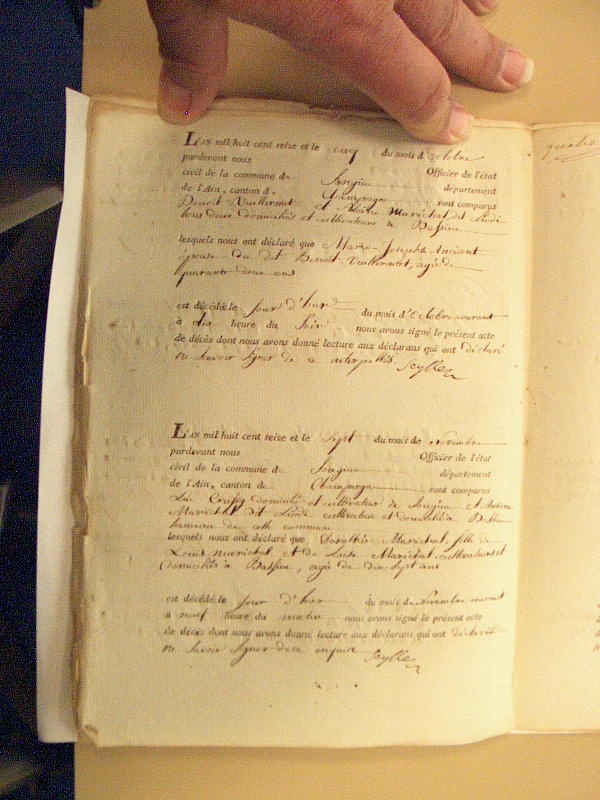 L'AN mil huit cent seize et le cinq du mois d'octobre
pardevant nous Officier de l'état
civil de la commune de Songieu département
de l'Ain, canton de Champagne sont comparus
Benoit Vuillermet et Antoine Maréchal dit Liodi
tous deux domiciliés et cultivateurs de Bassieu
lesquels nous ont déclaré que Marie Josephte Anciant
épouse du dit Benoit Vuillermet, agée de
quarante deux ans
est décédé le jour d'hier du mois d'octobre courant
à dix heure du soir nous avons signé le présent acte
de décès dont nous avons donné lecture aux déclarans qui ont déclaré
ne savoir signer de ce interpellés Seyllez
L'AN mil huit cent seize et le sept du mois de Novembre
pardevant nous Officier de l'état
civil de la commune de Songieu département
de l'Ain, canton de Champagne sont comparus
domicilié et cultivateur de Songieu et Antoine
Maréchal dit Liodi cultivateur et domicilié à
hameau de cette commune
lesquels nous ont déclaré que Dorothée Maréchal, fille de
Louis maréchal et de Louise Maréchal cultivateurs et
domiciliés à Bassieu, agée de dix sept ans
est décédé le jour d'hier du mois de Novembre courant
à neuf heure du matin nous avons signé le présent acte
de décès dont nous avons donné lecture aux déclarans qui ont déclaré
ne savoir signer de ce enquis Seyllez
quatre